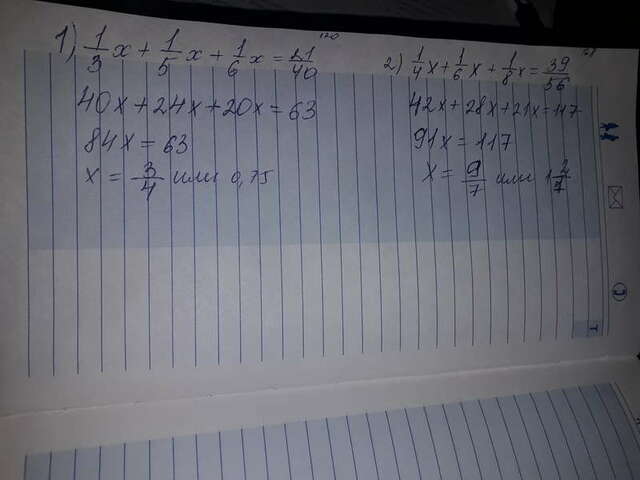 1) 1/3 x + 1/5 x + 1/6 x = 21/40
120
40x + 24x + 20x = 63
84x = 63
x = 3/4 или 0,75
2) 1/4 x + 1/6 x + 1/8 x = 39/56
42x + 28x + 21x = 117
91x = 117
x = 9/7 или 1 2/7